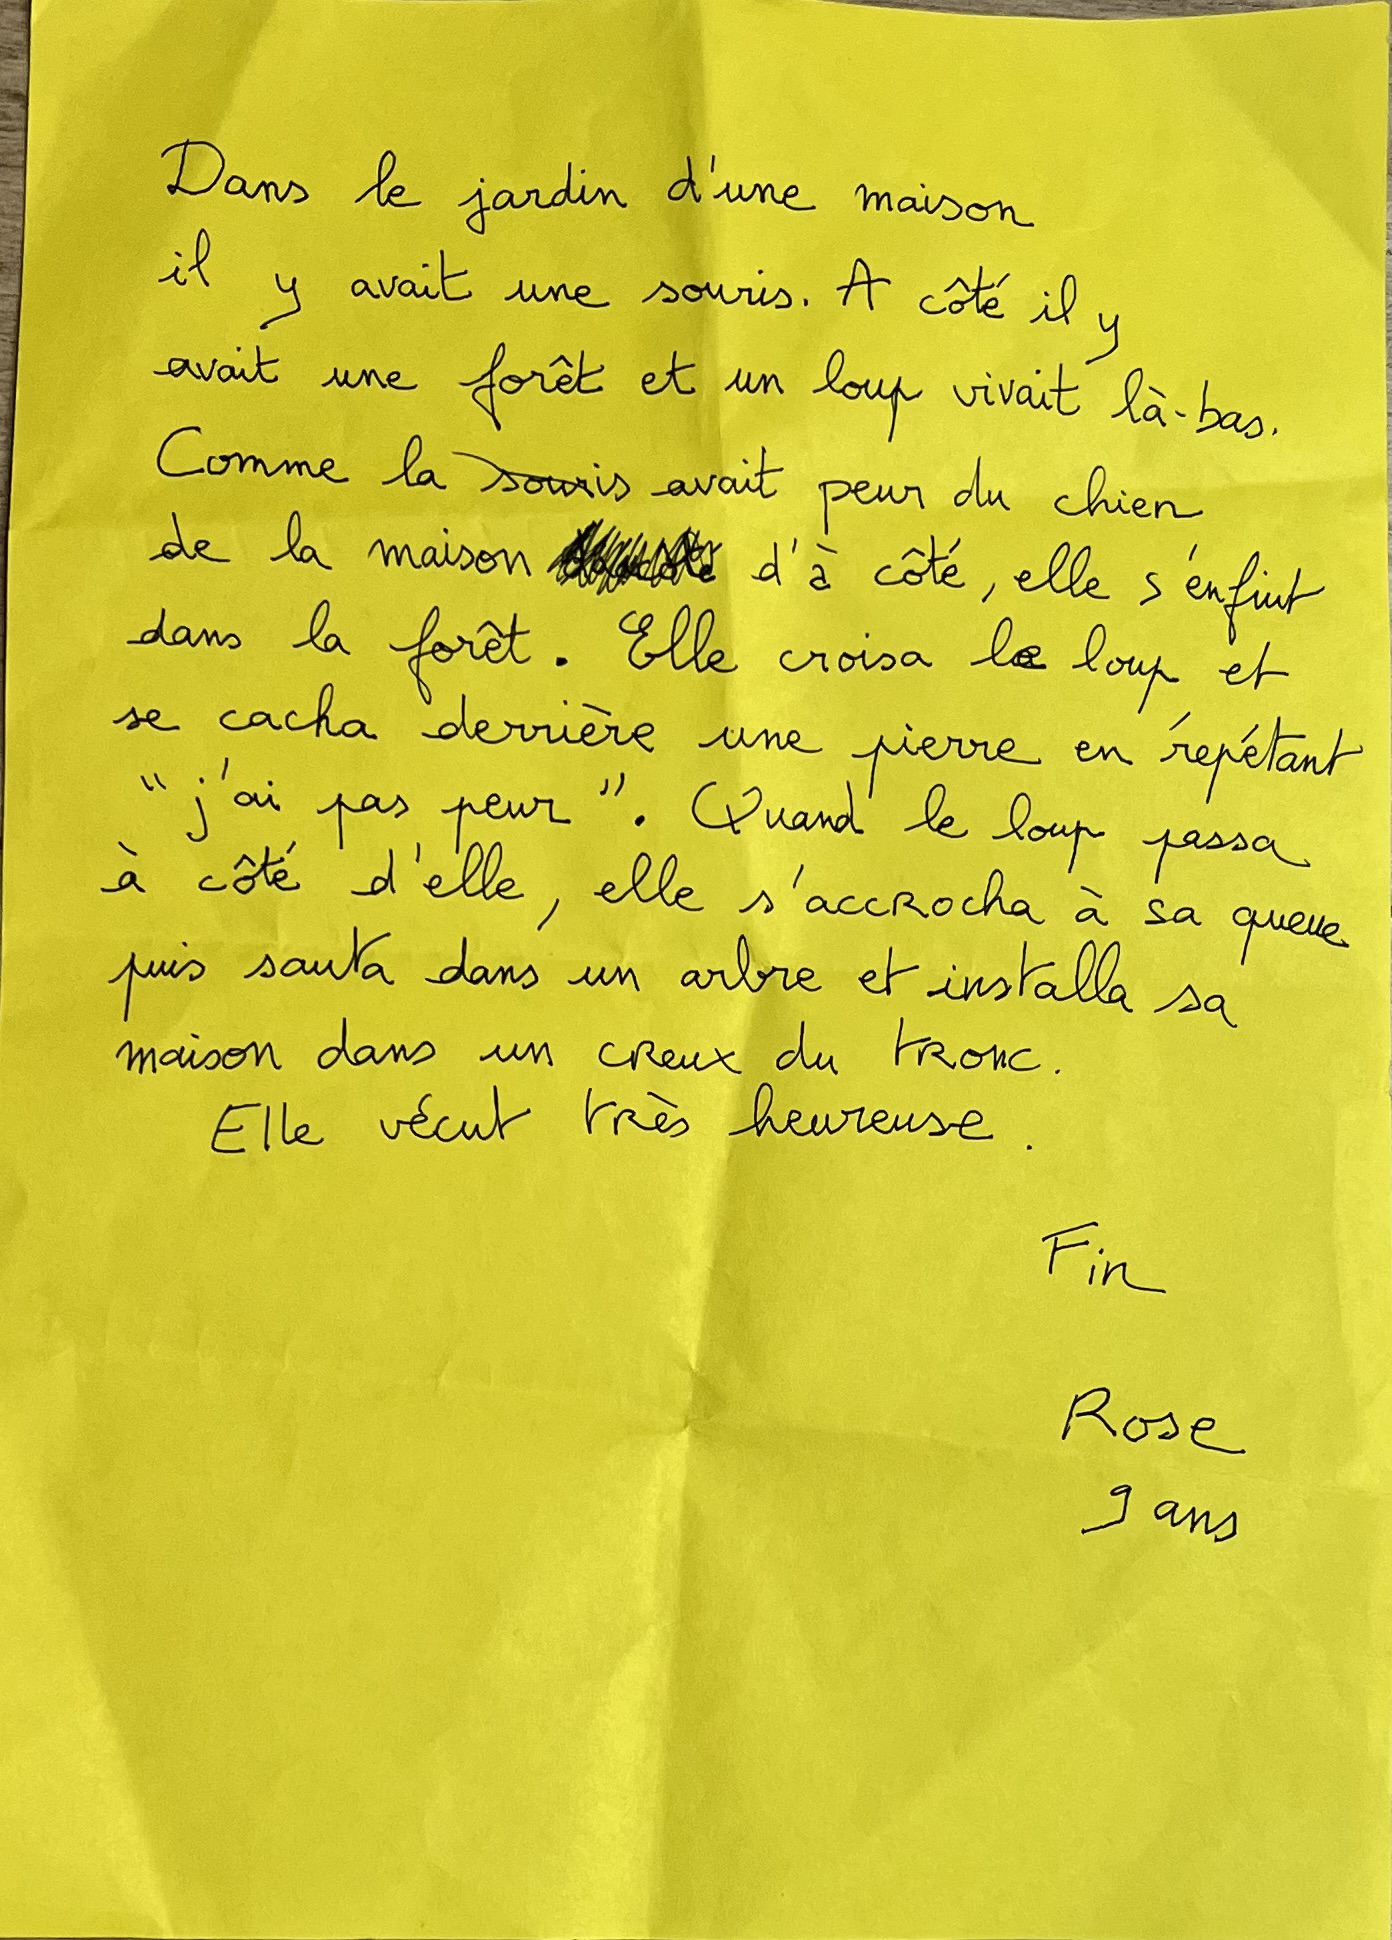 Dans le jardin d'une maison
il y avait une souris. A côté il y
avait une forêt et un loup vivait là-bas.
Comme la souris avait peur du chien
de la maison d'à côté, elle s'enfuit
dans la forêt. Elle croisa le loup et
se cacha derrière une pierre en répétant
"j'ai pas peur". Quand le loup passa
à côté d'elle, elle s'accrocha à sa queue
puis sauta dans un arbre et installa sa
maison dans un creux du tronc.
Elle vécut très heureuse.
Fin
Rose
9 ans